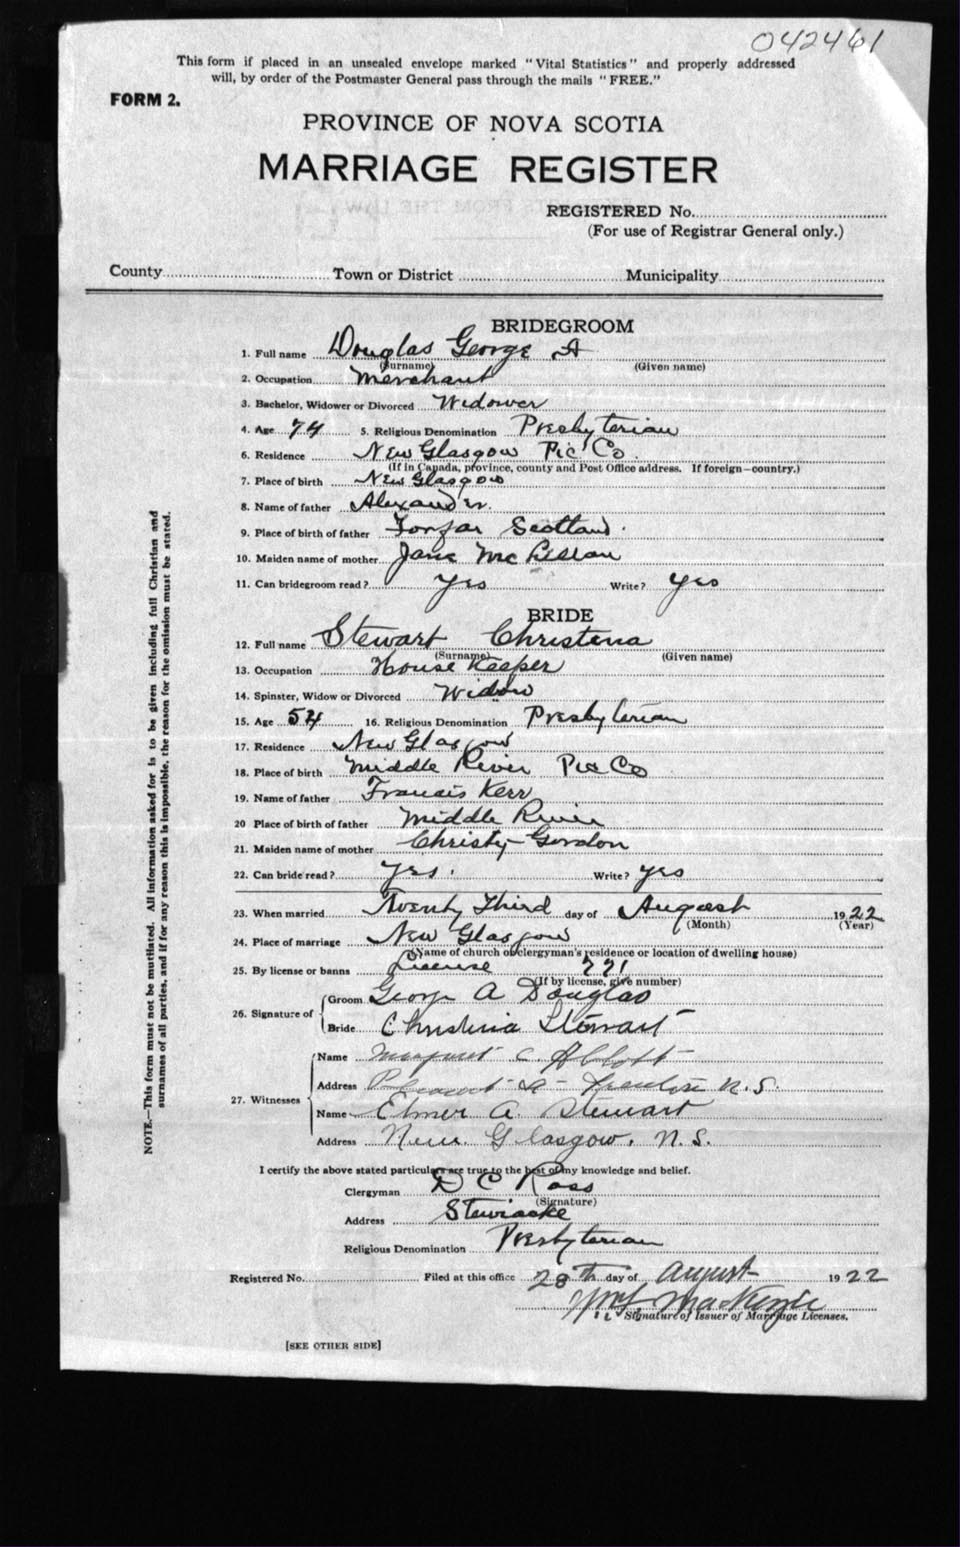 042461
This form if placed in an unsealed envelope marked "Vital Statistics" and properly addressed
will, by order of the Postmaster General pass through the mails "FREE."
FORM 2.
PROVINCE OF NOVA SCOTIA
MARRIAGE REGISTER
REGISTERED No.
(For use of Registrar General only.)
County Town or District Municipality
BRIDEGROOM
1. Full name Douglas George A
(Surname) (Given name)
2. Occupation Merchant
3. Bachelor, Widower or Divorced Widower
4. Age 74 5. Religious Denomination Presbyterian
6. Residence New Glasgow Pic Co.
(If in Canada, province, county and Post Office address. If foreign—country.)
7. Place of birth New Glasgow
8. Name of father Alexander.
9. Place of birth of father Forfar Scotland.
10. Maiden name of mother Jane McLellan
11. Can bridegroom read? Yes Write? Yes
BRIDE
12. Full name Stewart Christena
(Surname) (Given name)
13. Occupation House Keeper
14. Spinster, Widow or Divorced Widow
15. Age 54 16. Religious Denomination Presbyterian
17. Residence New Glasgow
18. Place of birth Middle River Pic Co
19. Name of father Francis Kerr
20 Place of birth of father Middle River
21. Maiden name of mother Christy Gordon
22. Can bride read? Yes. Write? Yes
23. When married Twenty Third day of August 1922
(Month) (Year)
24. Place of marriage New Glasgow
(Name of church or clergyman's residence or location of dwelling house)
25. By license or banns License 771
(If by license, give number)
26. Signature of Groom George A Douglas
Bride Christina Stewart
27. Witnesses
Name Margaret C.
Address Trenton N.S.
Name Elmer A. Stewart
Address New Glasgow, N.S.
I certify the above stated particulars are true to the best of my knowledge and belief.
Clergyman D C Ross
(Signature)
Address Stewiacke
Religious Denomination Presbyterian
Registered No. Filed at this office 28th day of August 1922
MacKenzie
Signature of Issuer of Marriage Licenses.
[SEE OTHER SIDE]
NOTE.—This form must not be mutilated. All information asked for is to be given including full Christian and
surnames of all parties, and if for any reason this is impossible, the reason for the omission must be stated.